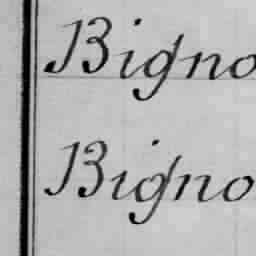 Bigno
Bigno